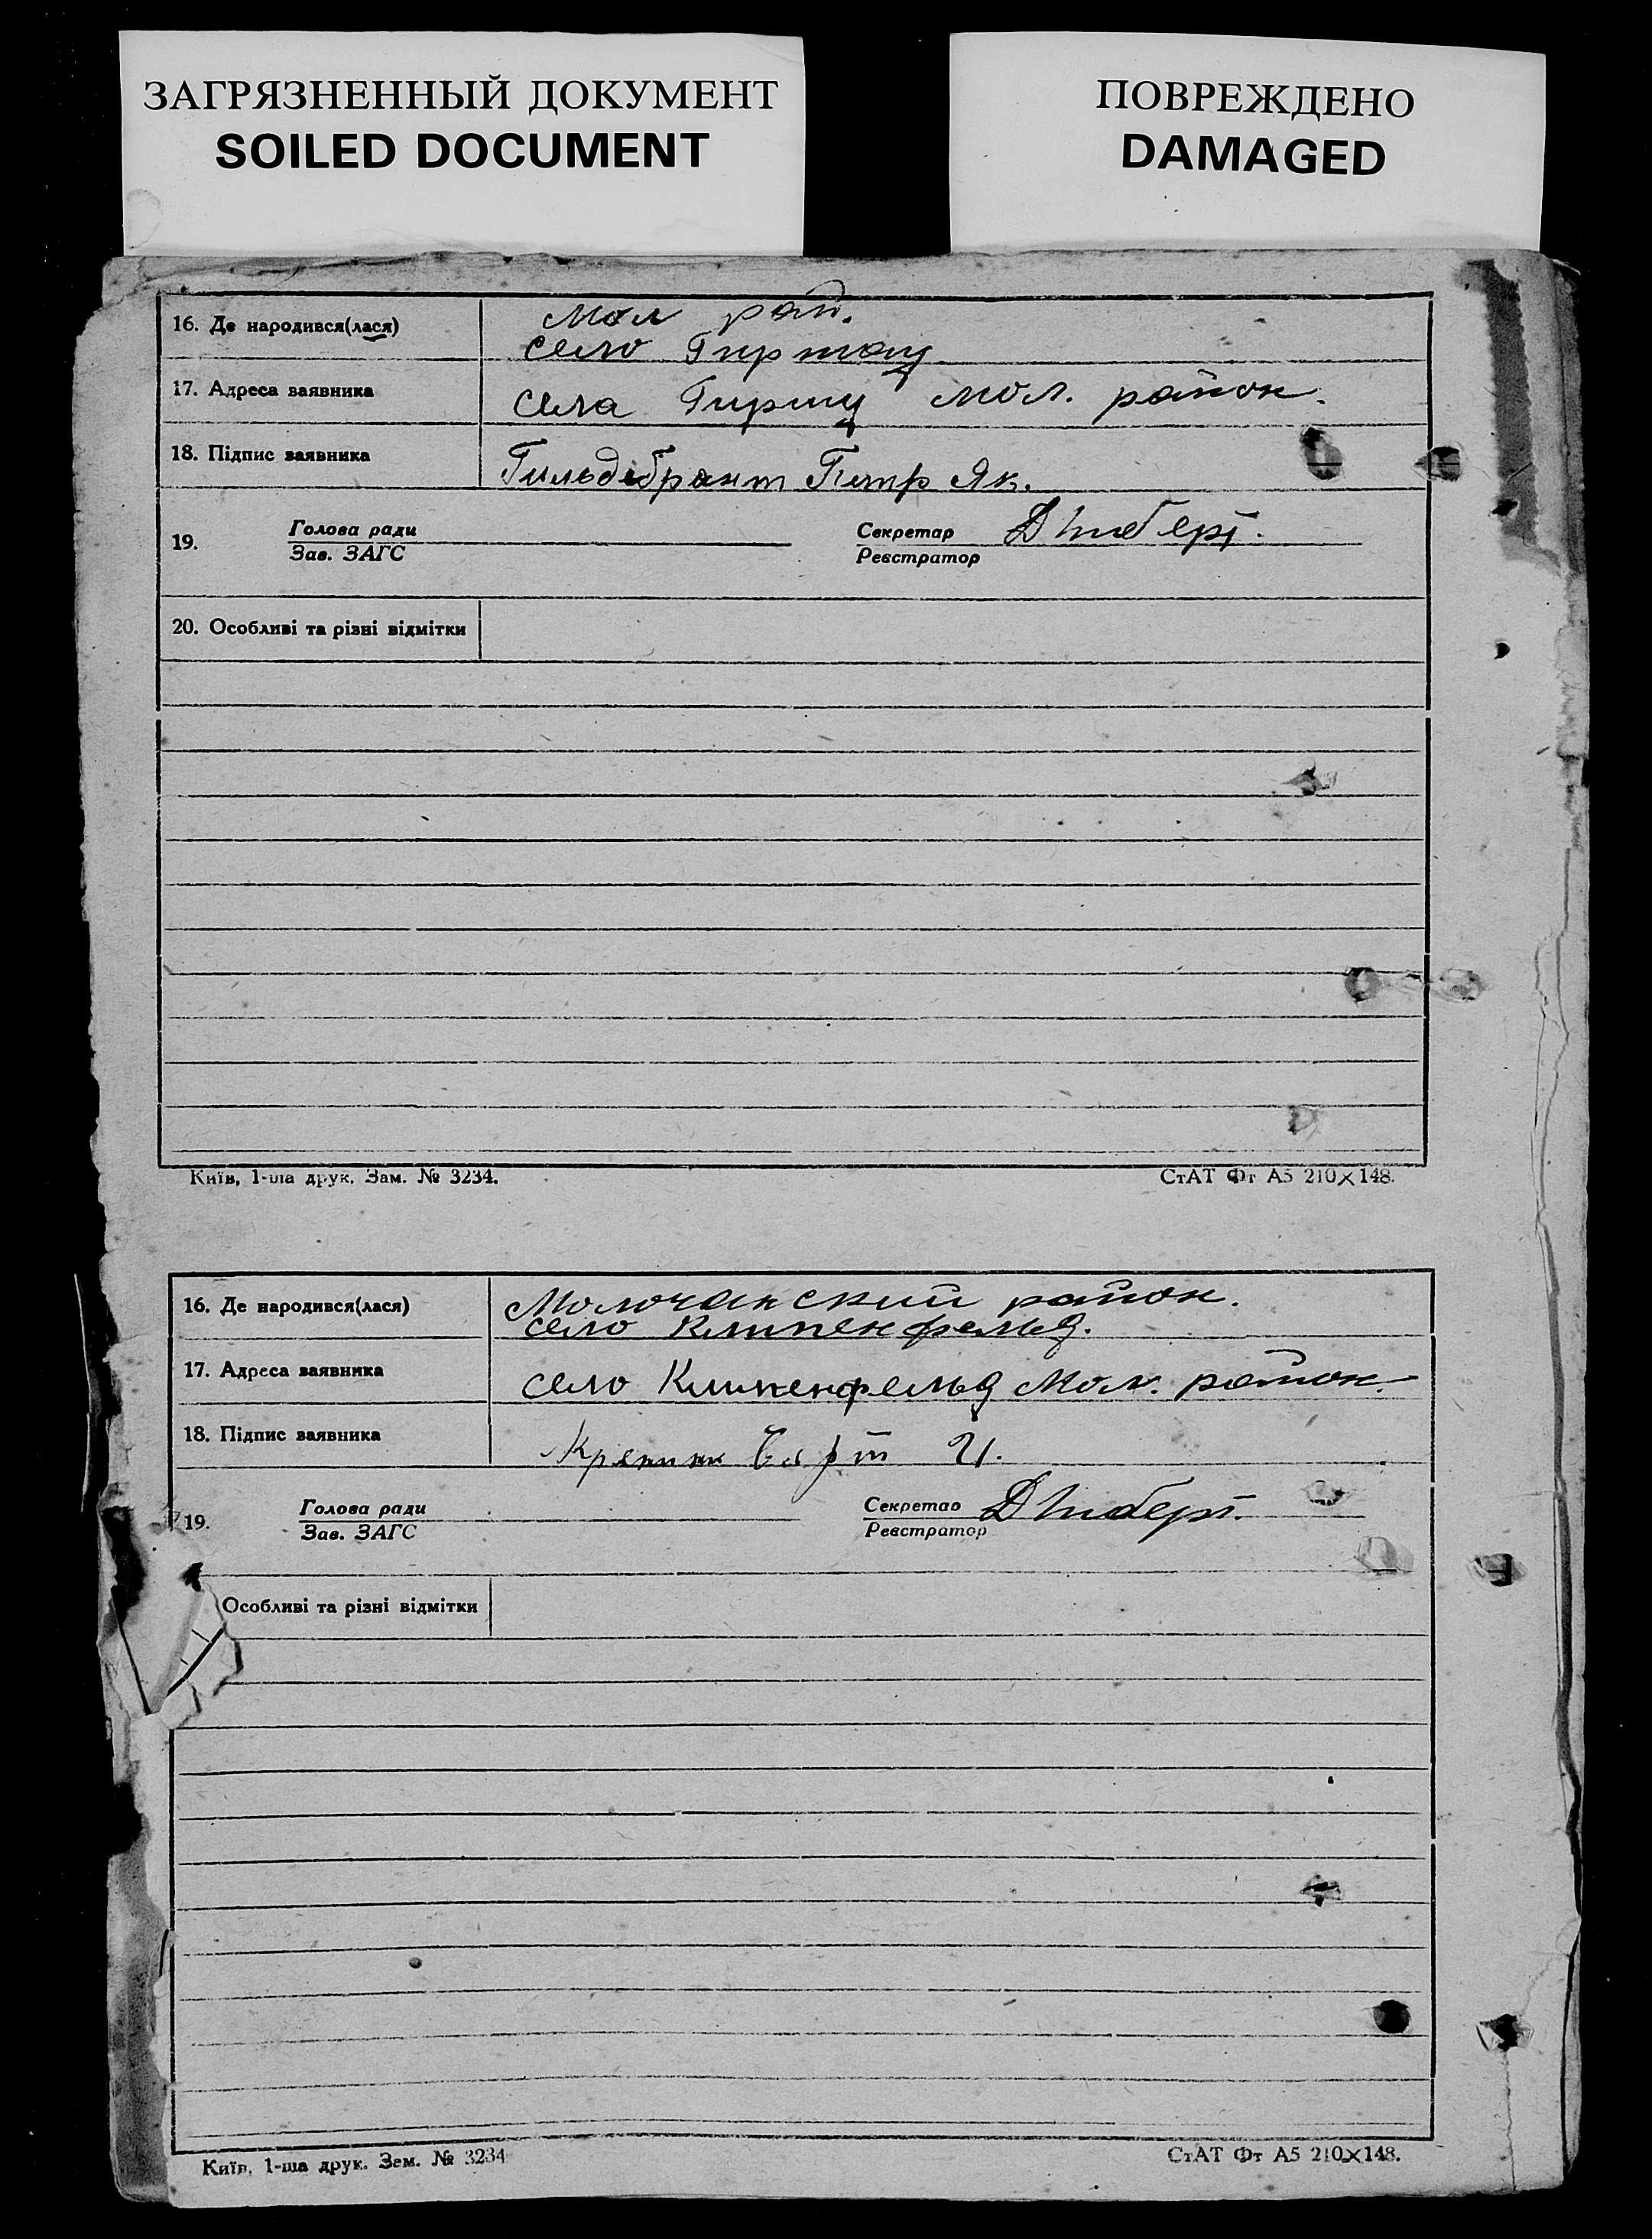 ЗАГРЯЗНЕННЫЙ ДОКУМЕНТ
SOILED DOCUMENT
ПОВРЕЖДЕНО
DAMAGED
16. Де народився(лася)
Мол рай.
село
17. Адреса заявника
села мол. район.
18. Підпис заявника
Гильдебрант Петр Як.
19.
Голова ради
Зав. ЗАГС
Секретар
Реєстратор
20. Особливі та різні відмітки
Київ, 1-ша друк. Зам. № 3234.
СтАТ Фт А5 210×148.
16. Де народився(лася)
Молочанский район.
село
17. Адреса заявника
село Мол. район.
18. Підпис заявника
19.
Голова ради
Зав. ЗАГС
Секретар
Реєстратор
Особливі та різні відмітки
Київ, 1-ша друк. Зам. № 3234
СтАТ Фт А5 210×148.